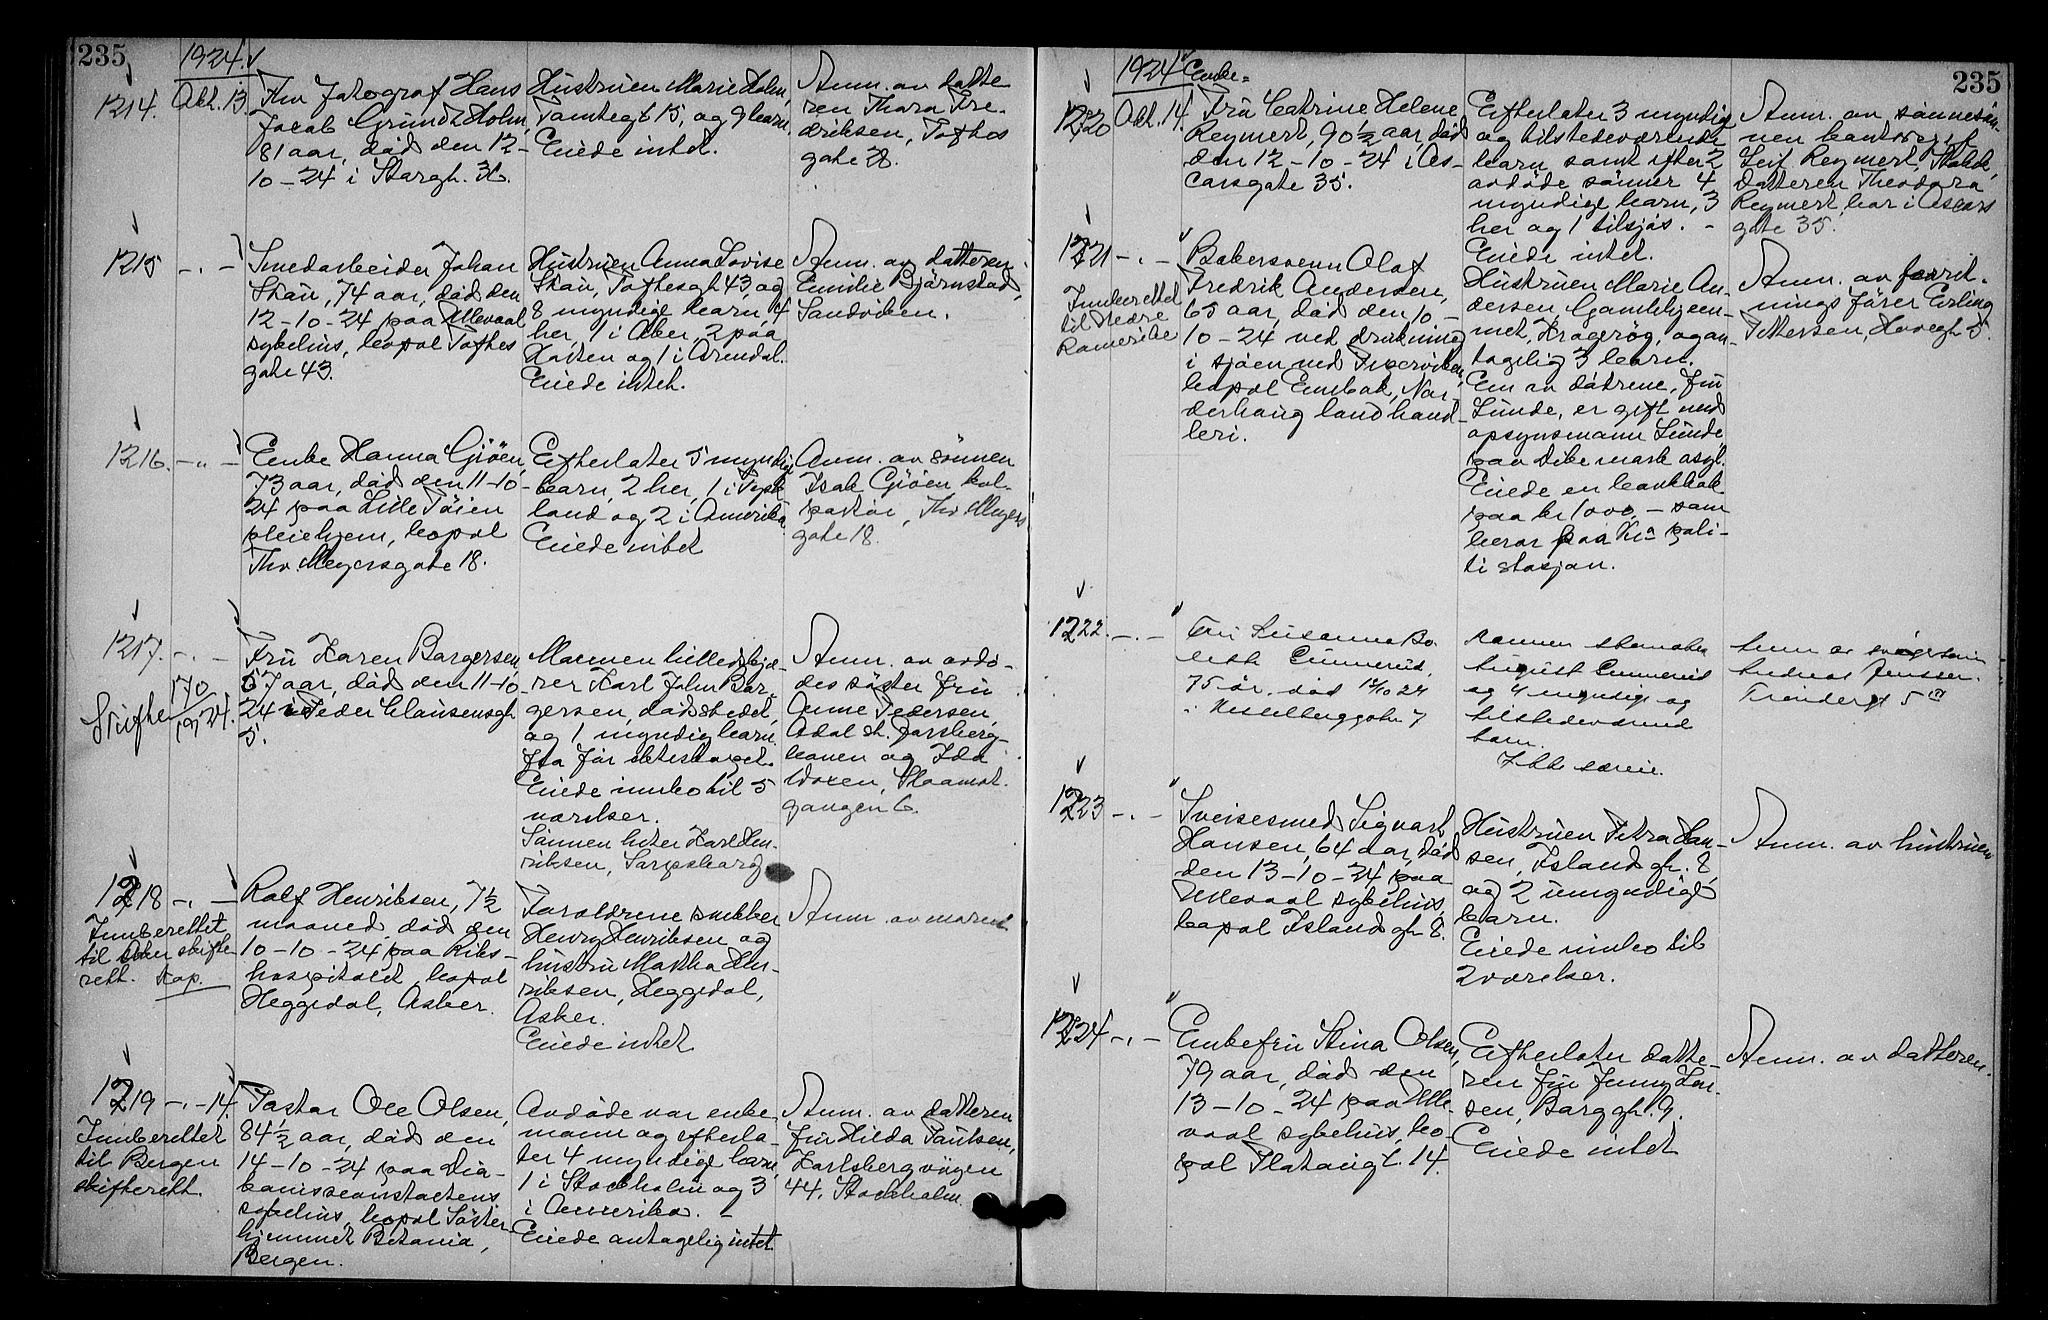 235
1924.
1214. Okt. 13.
Fhv. fotograf Hans
Jacob Grundt Holm,
81 aar, död den 12-
10-24 i Storgt. 36.
Hustruen Marie Holm,
Tomtegt 15, og 9 barn.
Eiede intet.
Anm. av datte
ren Thora Fre-
driksen, Tofhes
gate 28.
1215 -.-
Smedarbeider Johan
Skau, 74 aar, död den
12-10-24 paa Ullevaal
sykehus, bopæl Tofhes
gate 43.
Hustruen Anna Lovise
Skau, Tofhesgt 43, og
8 myndige barn, 4
her, 1 i Aker, 2 paa
Hatten og 1 i Arendal.
Eiede intet.
Anm. av datteren
Emilie Björnstad,
Sandviken.
1216. -„-
Enke Hanna Giöen,
73 aar, död den 11-10-
24 paa Lille Töien
pleiehjem, bopæl
Thv. Meyersgate 18.
Efterlater 5 myndige
barn, 2 her, 1 i Tysk
land og 2 i Amerika.
Eiede intet
Anm. av sönnen
Isak Giöen kol-
portör, Thv Meyers
gate 18.
1217. -.-
Skifte 170/1924.
Fru Karen Borgersen
57 aar, död den 11-10-
24 i Peder Clausensgt
5.
Mannen billedskjæ-
rer Karl John Bor-
gersen, dödsstedet,
og 1 myndig barn
fra för ekteskapet.
Eiede innbo til 5
værelser.
Sönnen heter Karl Hen-
riksen, Sarpsborg
Anm. av avdö-
des söster fru
Anne Pedersen,
Adal st. Jarsberg-
banen og Ida
Woxen, Skaamot.
gangen 6.
1218 -.-
Innberettet
til Asker skifte
rett. Kop.
Rolf Henriksen, 7½
maaned, död den
10-10-24 paa Riks-
hospitalet, bopæl
Heggedal, Asker.
Forældrene snekker
Henry Henriksen og
hustru Martha Hen-
riksen, Heggedal,
Asker.
Eiede intet
Anm. av moren
1219 -.- 14.
Innberettet
til Bergen
skifterett.
Pastor Ole Olsen,
84½ aar, död den
14-10-24 paa Dia-
konisseanstaltens
sykehus, bopæl Söster
hjemmet Betania,
Bergen.
Avdöde var enke-
mann og efterla-
ter 4 myndige barn,
1 i Stockholm og 3
i Amerika. -
Eiede antagelig intet
Anm. av datteren
fru Hilda Paulsen,
Karlsbergvägen
44, Stockholm.
235
1924
1220 Okt. 14.
Enke=
Fru Catrine Helene
Reymert, 90½ aar, död
den 12-10-24 i Os-
carsgate 35.
Efterlater 3 myndige
og tilstedeværende
barn samt efter 2
avdöde sönner 4
myndige barn, 3
her og 1 tilsjös. -
Eiede intet.
Anm. av sönnesön-
nen kontorsjef
Leif Reymert,
Datteren Theodora
Reymert bor i Oscars
gate 35.
1221 -.-
Innberettet
til Nedre
Romerike
Bakersvenn Olaf
Fredrik Andersen,
65 aar, död den 10-
10-24 ved drukning
i sjöen ved Pipervíken,
bopæl Enebak, Nor-
derhaug landhand-
leri.
Hustruen Marie An-
dersen, Gamlehjem-
met, Kragerög, og an-
tagelig 3 barn.
En av dötrene, fru
Lunde, er gift med
opsynsmann Lunde
paa Dikemark asyl.
Eiede en bankbok
paa kr 1000,- som
beror paa Kra poli-
ti stasjon.
Anm. av forret-
nings förer Erling
Pettersen, Havegt 5.
1222. -.-
Fru Susanna Bo
lette Gunnerud,
75 år. död 12/10 24
i Hesselberggate 7
Mannen skomaker
August Gunnerud
og 4 myndige og
tilstedeværend
barn.
Ikke særeie.
Anm av svigersönn
Andreas Jenssen.
Tröndergt 5 III
1223 -.-
Sveisesmed Sigvart
Hansen, 64 aar, död
den 13-10-24 paa
Ullevaal sykehus,
bopæl Islands gt. 8.
Hustruen Petra Han-
sen, Islands gt. 8,
og 2 umyndige
barn.
Eiede innbo til
2 værelser.
Anm. av hustruen
1224 -.-
Enkefru Stina Olsen,
79 aar, död den
13-10-24 paa Ulle-
vaal sykehus, bo-
pæl Platougt. 14.
Efterlater datte-
ren fru Jenny Lar-
sen, Borggt. 9.
Eiede intet
Anm. av datteren.